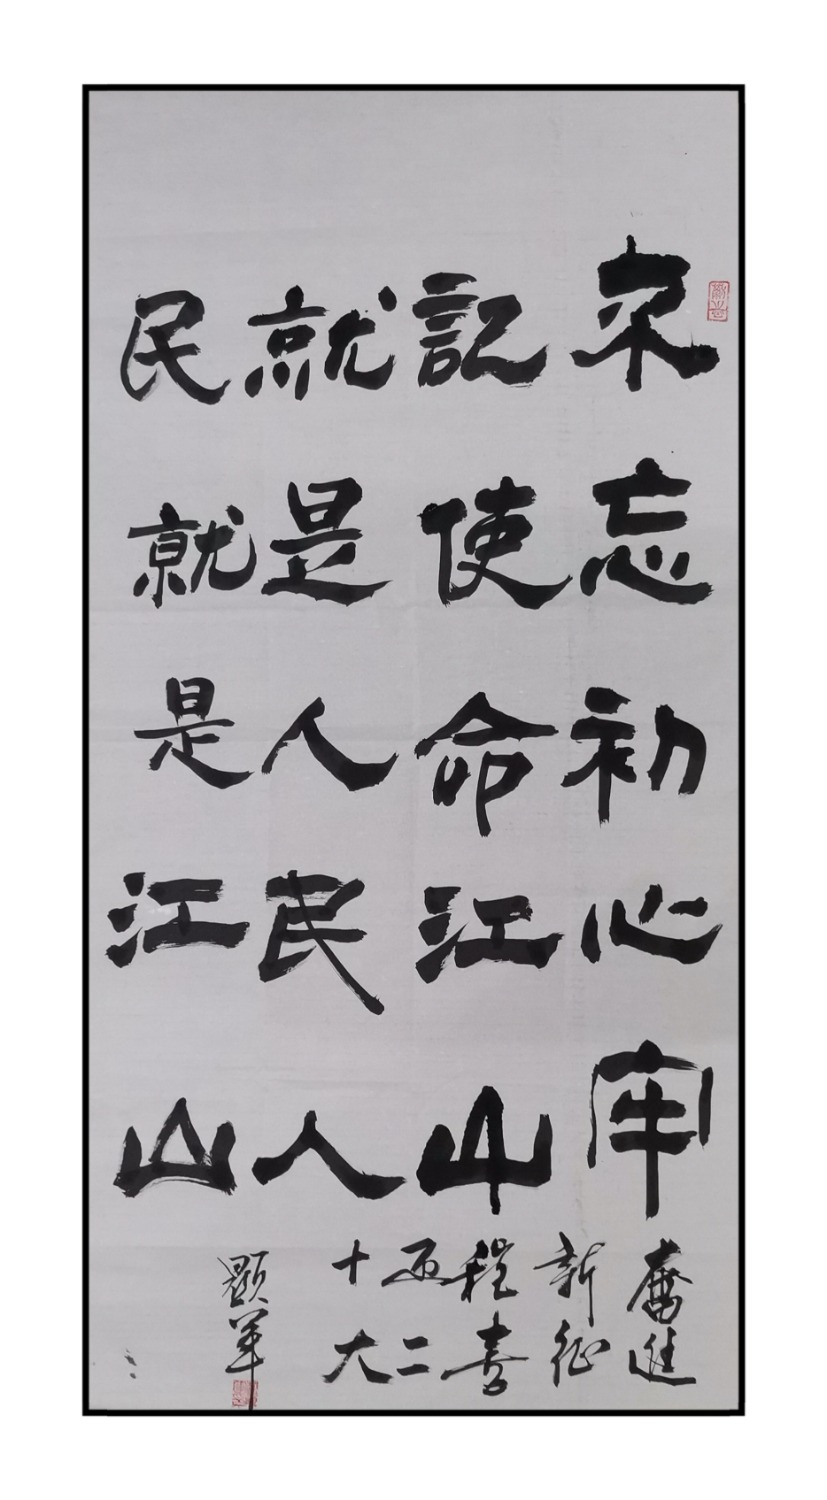 忘初心牢
記使命江山
就是人民人
民就是江山
奮進
新征
程喜
迎二
十大
顯軍